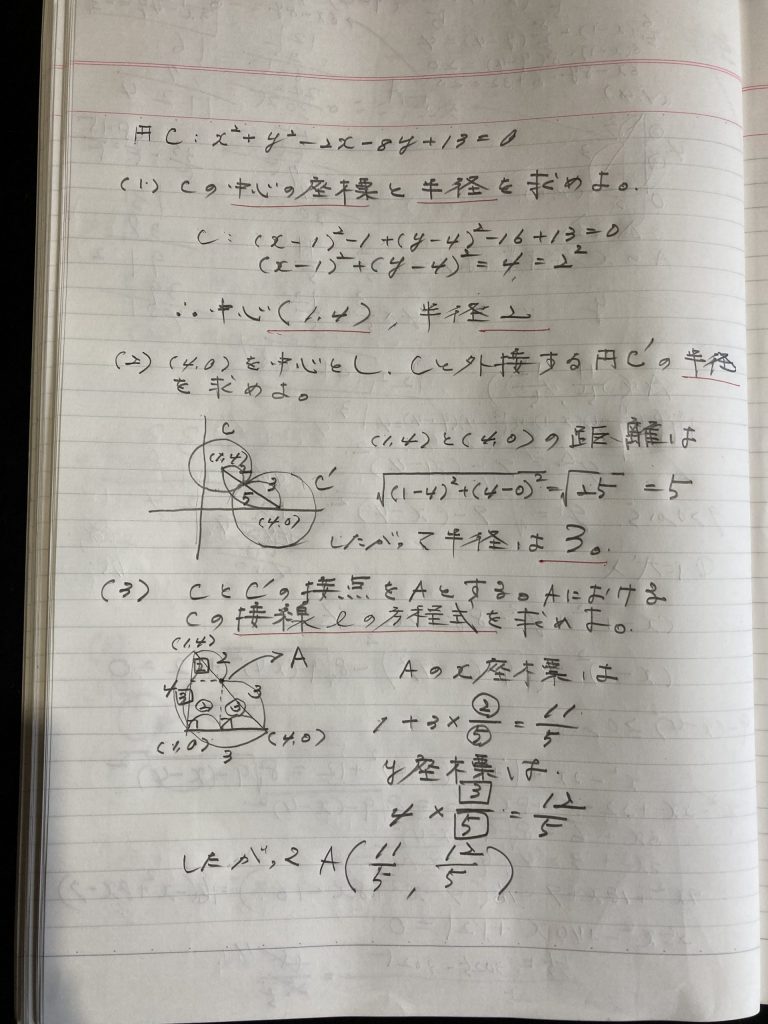 円C：x²+y²-2x-8y+13=0
(1) Cの中心の座標と半径を求めよ。
C：(x-1)²-1+(y-4)²-16+13=0
(x-1)²+(y-4)²=4=2²
∴中心(1,4)，半径2
(2) (4,0)を中心とし、Cと外接する円C'の半径
を求めよ。
C
(1,4)
2
C'
3
5
(4,0)
(1,4)と(4,0)の距離は
√(1-4)²+(4-0)²=√25=5
したがって半径は3。
(3) CとC'の接点をAとする。Aにおける
Cの接線ℓの方程式を求めよ。
(1,4)
2
2
A
4
3
3
②
③
(1,0)
(4,0)
3
Aのx座標は
1+3×②/⑤=11/5
y座標は
4×3/5=12/5
したがって A(11/5, 12/5)